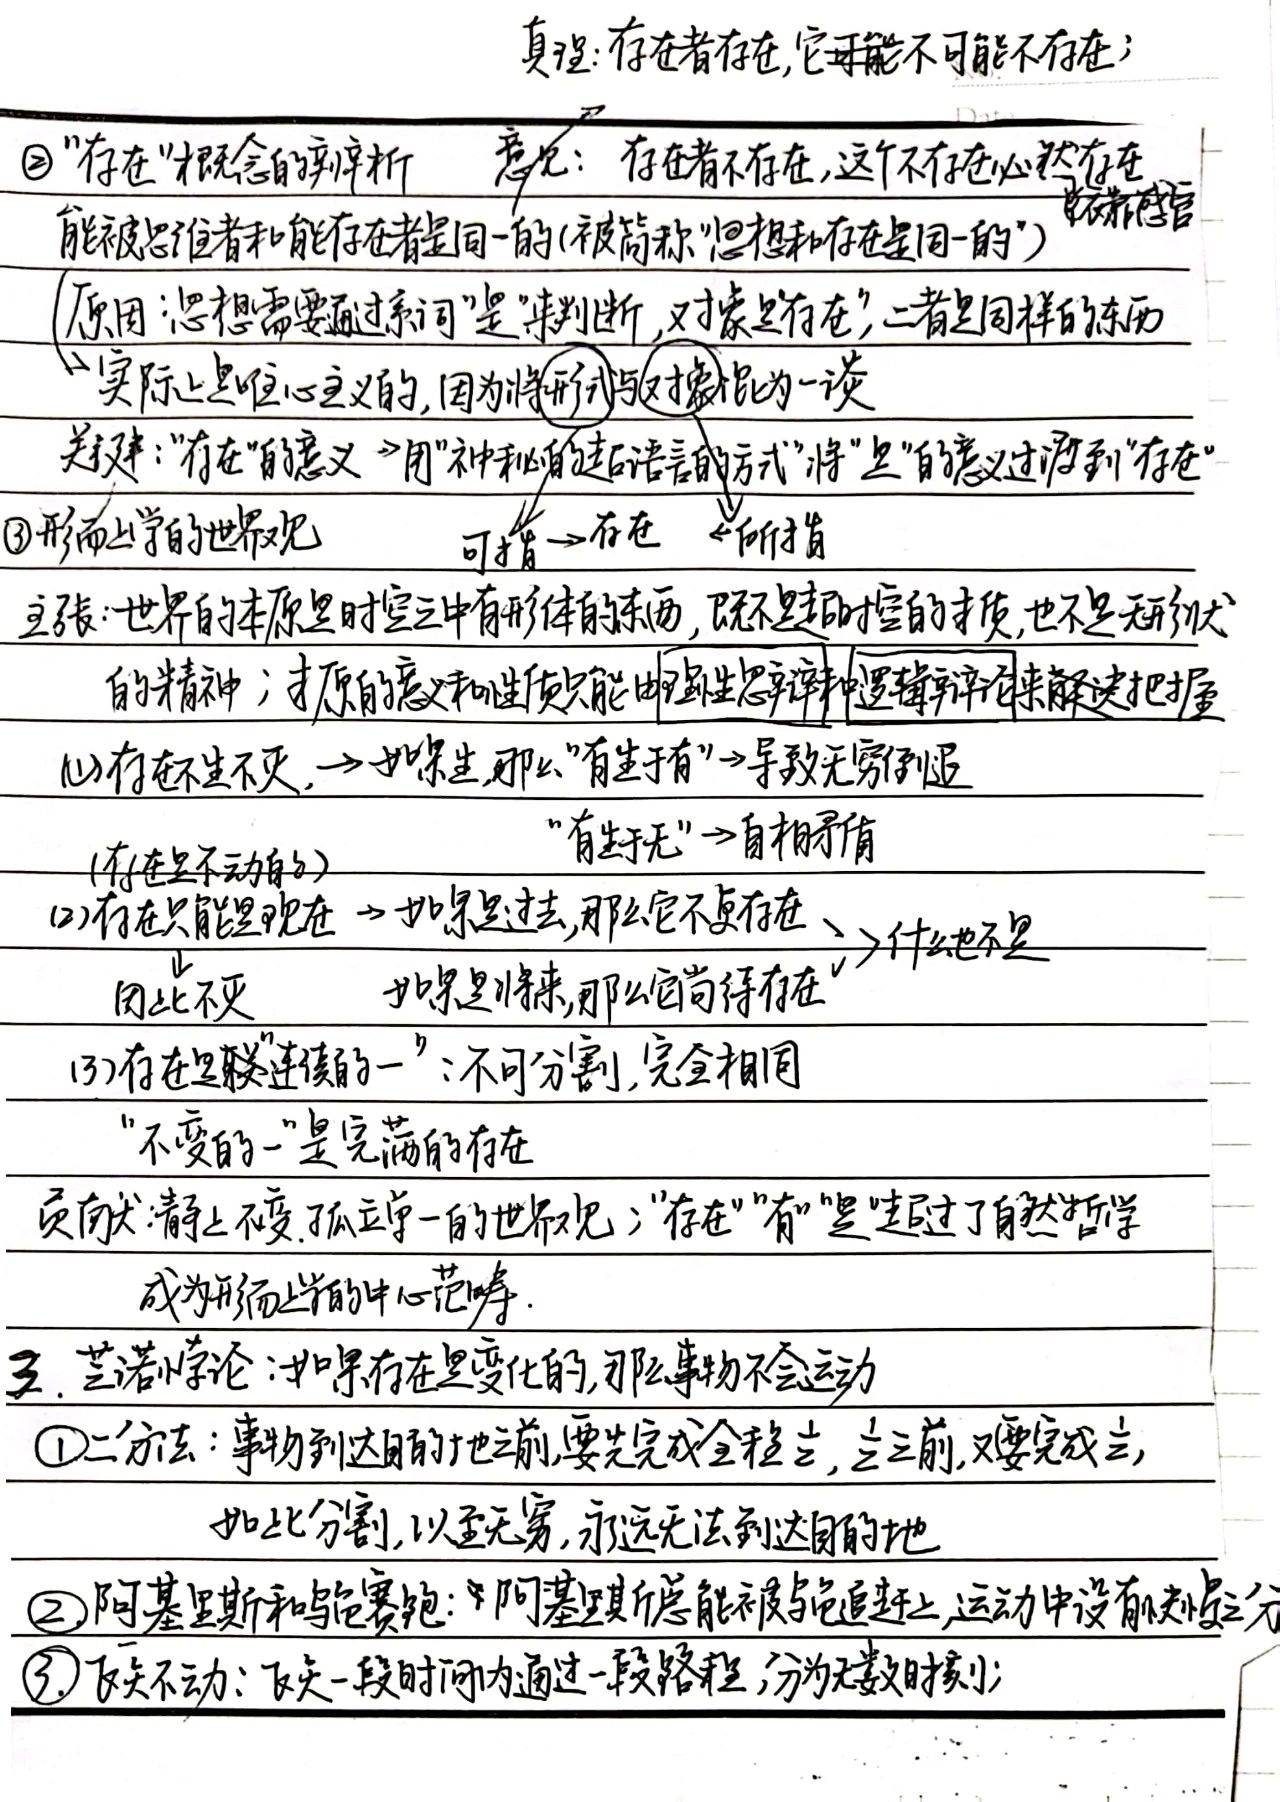 真理：存在者存在，它不可能不存在；
②"存在"概念的辨析 意见：存在者不存在，这个不存在必然存在
依靠感官
能被思维者和能存在者是同一的（被简称"思想和存在是同一的"）
原因：思想需要通过系词"是"来判断，对象是"存在"，二者是同样的东西
实际上是唯心主义的，因为将形式与对象混为一谈
关键："存在"的意义→用"神秘的超语言的方式"将"是"的意义过渡到"存在"
③形而上学的世界观 可指→存在 ←所指
主张：世界的本原是时空之中有形体的东西，既不是超时空的本质，也不是无形状
的精神；本原的意义和性质只能由理性思辨和逻辑辩论来解决把握
(1)存在不生不灭，→如果生，那么"有生于有"→导致无穷倒退
"有生于无"→自相矛盾
(存在是不动的)
(2)存在只能是现在→如果是过去，那么它不复存在
→什么也不是
因此不灭 如果是将来，那么它尚待存在
(3)存在是"连续的一"：不可分割，完全相同
"不变的一"是完满的存在
贡献：静止不变.孤立单一的世界观；"存在""有""是"超过了自然哲学
成为形而上学的中心范畴.
3.芝诺悖论：如果存在是变化的，那么事物不会运动
①二分法：事物到达目的地之前，要先完成全程½，½之前，又要完成½，
如此分割，以至无穷，永远无法到达目的地
②阿基里斯和乌龟赛跑：阿基里斯总能被乌龟追赶上，运动中没有快慢之分
③.飞矢不动：飞矢一段时间内通过一段路程，分为无数时刻；